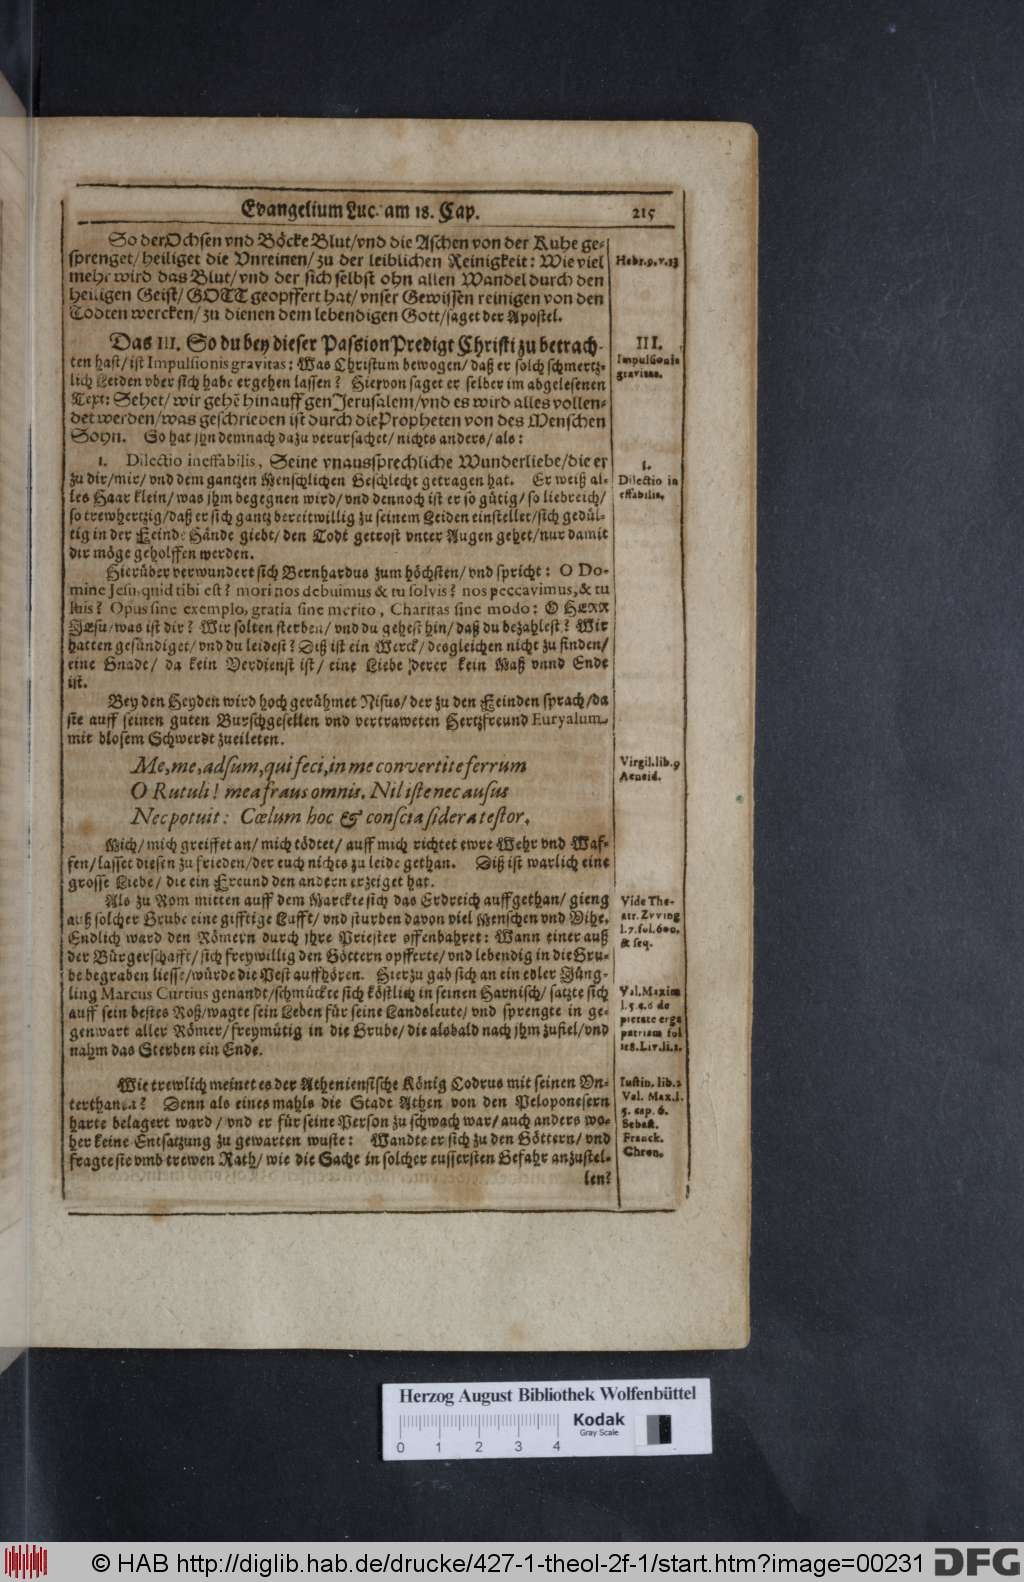 Evangelium Luc. am 18. Cap. 215
So der Ochsen vnd Böcke Blut/ vnd die Aschen von der Kuhe ge-
sprenget/ heiliget die Vnreinen/ zu der leiblichen Reinigkeit: Wie viel
mehr wird das Blut/ vnd der sich selbst ohn allen Wandel durch den
heiligen Geist/ GOTT geopffert hat/ vnser Gewissen reinigen von den
Todten wercken/ zu dienen dem lebendigen Gott/ saget der Apostel.
Hebr. 9. v. 13
Das III. So du bey dieser Passion Predigt Christi zu betrach-
ten hast/ ist Impulsionis gravitas: Was Christum bewogen/ daß er solch schmertz-
lich Leiden vber sich habe ergehen lassen? Hiervon saget er selber im abgelesenen
Text: Sehet/ wir gehē hinauff gen Jerusalem/ vnd es wird alles vollen-
det werden/ was geschrieben ist durch die Propheten von des Menschen
Sohn. So hat jhn demnach dazu verursachet/ nichts anders/ als:
III.
Impulsionis
gravitas.
1. Dilectio ineffabilis, Seine vnaussprechliche Wunderliebe/ die er
zu dir/ mir/ vnd dem gantzen Menschlichen Geschlecht getragen hat. Er weiß al-
les Haar klein/ was jhm begegnen wird/ vnd dennoch ist er so gütig/ so liebreich/
so trewhertzig/ daß er sich gantz bereitwillig zu seinem Leiden einstellet/ sich gedül-
tig in der Feinde Hände giebt/ den Todt getrost vnter Augen gehet/ nur damit
dir möge geholffen werden.
1.
Dilectio in
effabilis.
Hierüber verwundert sich Bernhardus zum höchsten/ vnd spricht: O Do-
mine Jesu, quid tibi est? mori nos debuimus & tu solvis? nos peccavimus, & tu
luis? Opus sine exemplo, gratia sine merito, Charitas sine modo: O HErr
JEsu/ was ist dir? Wir solten sterben/ vnd du gehest hin/ daß du bezahlest? Wir
hatten gesündiget/ vnd du leidest? Diß ist ein Werck/ desgleichen nicht zu finden/
eine Gnade/ da kein Verdienst ist/ eine Liebe derer kein Maß vnnd Ende
ist.
Bey den Heyden wird hoch gerühmet Nisus/ der zu den Feinden sprach/ da
sie auff seinen guten Burschgesellen vnd vertraweten Hertzfreund Euryalum
mit blosem Schwerdt zueileten.
Me, me, adsum, qui feci, in me convertite ferrum
O Rutuli! mea fraus omnis. Nil iste nec ausus
Nec potuit: Cœlum hoc & conscia sidera testor.
Virgil. lib. 9
Aeneid.
Mich/ mich greiffet an/ mich tödtet/ auff mich richtet ewre Wehr vnd Waf-
fen/ lasset diesen zu frieden/ der euch nichts zu leide gethan. Diß ist warlich eine
grosse Liebe/ die ein Freund den andern erzeiget hat.
Als zu Rom mitten auff dem Marckte sich das Erdreich auffgethan/ gieng
auß solcher Grube eine gifftige Lufft/ vnd sturben davon viel Menschen vnd Vihe.
Endlich ward den Römern durch jhre Priester offenbahret: Wann einer auß
der Bürgerschafft/ sich freywillig den Göttern opfferte/ vnd lebendig in die Gru-
be begraben liesse/ würde die Pest auffhören. Hierzu gab sich an ein edler Jüng-
ling Marcus Curtius genandt/ schmückte sich köstlich in seinen Harnisch/ satzte sich
auff sein bestes Roß/ wagte sein Leben für seine Landsleute/ vnd sprengte in ge-
genwart aller Römer/ freymütig in die Grube/ die alsbald nach jhm zufiel/ vnd
nahm das Sterben ein Ende.
Vide The-
atr. Zvving
l. 7. fol. 600.
& seq.
Val. Maxim
l. 5. c. 6 de
pietate erga
patriam fol
118. Liv. li. 1.
Wie trewlich meinet es der Atheniensische König Codrus mit seinen Vn-
terthanen? Denn als eines mahls die Stadt Athen von den Peloponesern
harte belagert ward/ vnd er für seine Person zu schwach war/ auch anders wo-
her keine Entsatzung zu gewarten wuste: Wandte er sich zu den Göttern/ vnd
fragte sie vmb trewen Rath/ wie die Sache in solcher eussersten Gefahr anzustel-
len?
Iustin. lib. 2
Val. Max. l.
5. cap. 6.
Sebast.
Franck.
Chron.
Herzog August Bibliothek Wolfenbüttel
Kodak
Gray Scale
0 1 2 3 4
© HAB http://diglib.hab.de/drucke/427-1-theol-2f-1/start.htm?image=00231
DFG